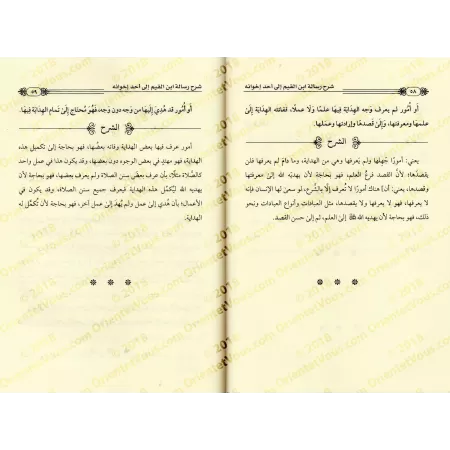 شرح رسالة ابن القيم إلى أحد إخوانه
٥٨
أَو أُمُور لم يعرف وَجه الهِدَايَة فِيهَا علمًا وَلَا عملًا، ففاتته الهِدَايَة إِلَى
علمهَا ومعرفتها، وَإِلَى قَصدهَا وإرادتها وعملها.
الشرح
يعني: أمورًا جهلها ولم يعرفها وهي من الهداية، وما دام لم يعرفها فلن
يقصدها؛ لأن القصد فرع العلم، فهو بحاجة لأن يهديه الله إلى معرفتها
وقصدها، يعني: أن هناك أمورًا لا تُعرف إلَّا بالشَّرع، لو سعى لها الإنسان فإنه
لا يعرفها، فهو لا يعرفها ولا يقصدها، مثل العبادات وأنواع العبادات ونحو
ذلك، فهو بحاجة لأن يهديه الله ﷻ إلى العلم، ثم إلى حسن القصد.
* * *
شرح رسالة ابن القيم إلى أحد إخوانه
٥٩
أَو أُمُور قد هُدِيَ إِلَيْهَا من وَجه دون وَجه، فَهُوَ مُحْتَاج إِلَى تَمام الهِدَايَة فِيهَا.
الشرح
أمور عرف فيها بعض الهداية وفاته بعضُها، فهو بحاجة إلى تكميل هذه
الهداية، فهو مهتدٍ في بعض الوجوه دون بعضها، وقد يكون هذا في عمل واحد
كالصَّلاة مثلًا، بأن عرف بعض سنن الصلاة ولم يعرف بعضها، فهو بحاجة لأن
يهديه الله ليُكمِّل هذه الهداية فيعرف جميع سنن الصلاة، وقد يكون في
الأعمال؛ بأن هُدي إلى عمل ولم يُهدَ إلى عمل آخر، فهو بحاجة لأن تُكمَّل له
الهداية.
* * *
© 2018
OrientetVous.com